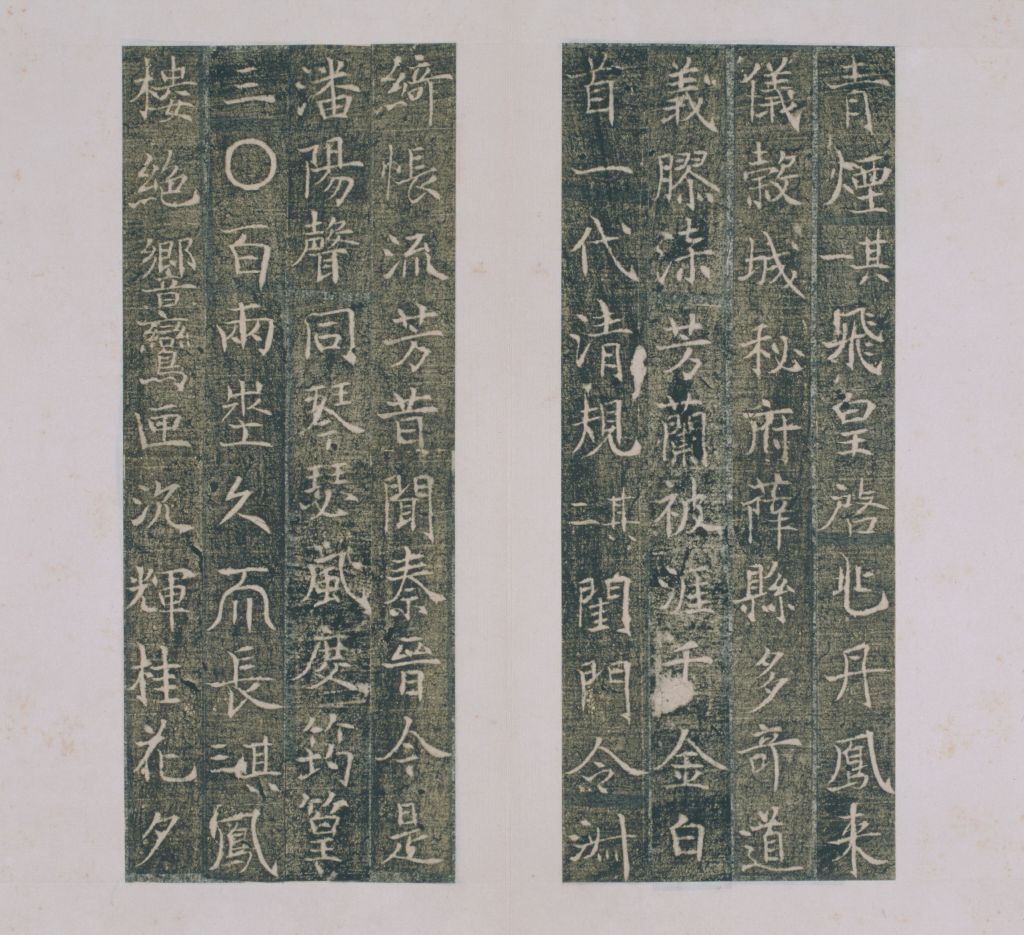 青煙其一飛皇啓兆丹鳳来
儀穀城秘府薛縣多奇道
義膠漆芳蘭被涯千金白
首一代清規其二閨門令淑
綺帳流芳昔聞秦晉今是
潘陽聲同琴瑟風度筠篁
三〇百兩埊久𠀑長其三鳳
樓絕響鸞匣沉輝桂花夕